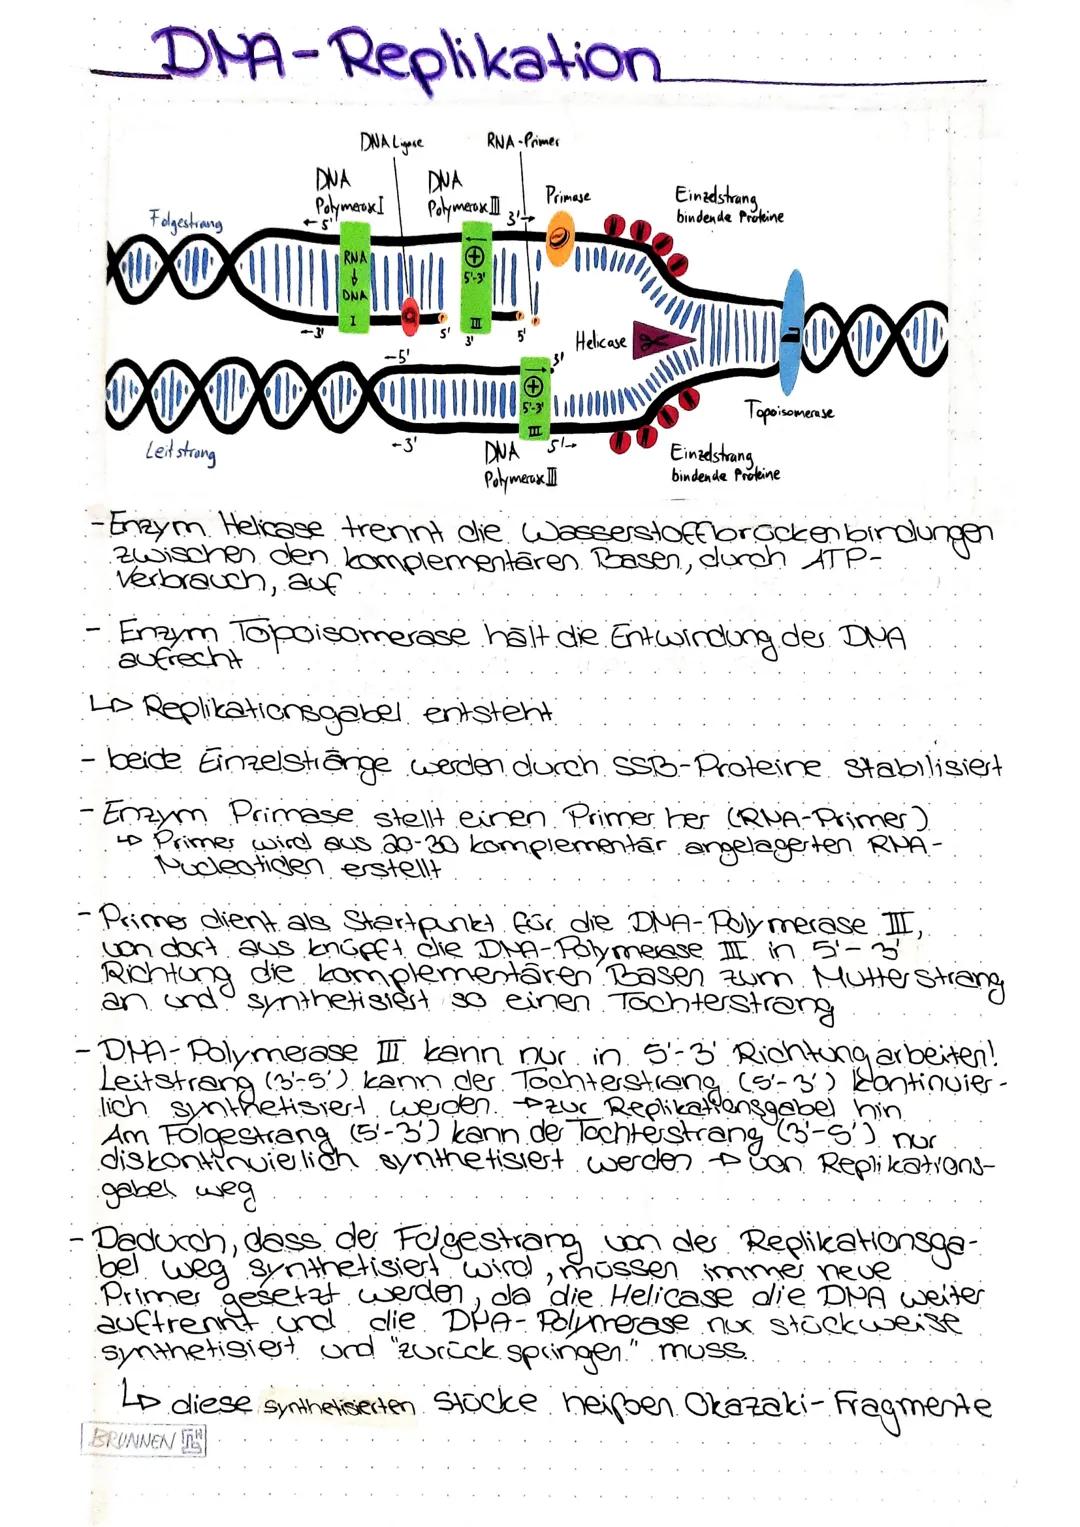 DNA-Replikation
DNA Ligase
RNA-Primer
DNA
Polymerase I
DNA
Polymerase III
Primase
Einzelstrang
bindende Proteine
Folgestrang
← 5'
3' →
RNA
↓
DNA
I
←
+
5'-3'
III
← 3'
5'
3'
5'
Helicase
← 5'
3'
→
+
5'-3'
III
Topoisomerase
Leitstrang
← 3'
DNA
Polymerase III
5' →
Einzelstrang
bindende Proteine
- Enzym Helicase trennt die Wasserstoffbrückenbindungen
zwischen den komplementären Basen, durch ATP-
Verbrauch, auf
- Enzym Topoisomerase hält die Entwindung der DNA
aufrecht
↳ Replikationsgabel entsteht
- beide Einzelstränge werden durch SSB-Proteine stabilisiert
- Enzym Primase stellt einen Primer her (RNA-Primer)
↳ Primer wird aus 20-30 komplementär angelagerten RNA-
Nucleotiden erstellt
- Primer dient als Startpunkt für die DNA-Polymerase III,
von dort aus knüpft die DNA-Polymerase III in 5'-3'
Richtung die komplementären Basen zum Mutterstrang
an und synthetisiert so einen Tochterstrang
- DNA-Polymerase III kann nur in 5'-3' Richtung arbeiten!
Leitstrang (3'-5') kann der Tochterstrang (5'-3') kontinuier-
lich synthetisiert werden → zur Replikationsgabel hin
Am Folgestrang (5'-3') kann der Tochterstrang (3'-5') nur
diskontinuierlich synthetisiert werden → von Replikations-
gabel weg
- Dadurch, dass der Folgestrang von der Replikationsga-
bel weg synthetisiert wird, müssen immer neue
Primer gesetzt werden, da die Helicase die DNA weiter
auftrennt und die DNA-Polymerase nur stückweise
synthetisiert und "zurück springen" muss.
↳ diese synthetisierten Stücke heißen Okazaki-Fragmente
BRUNNEN